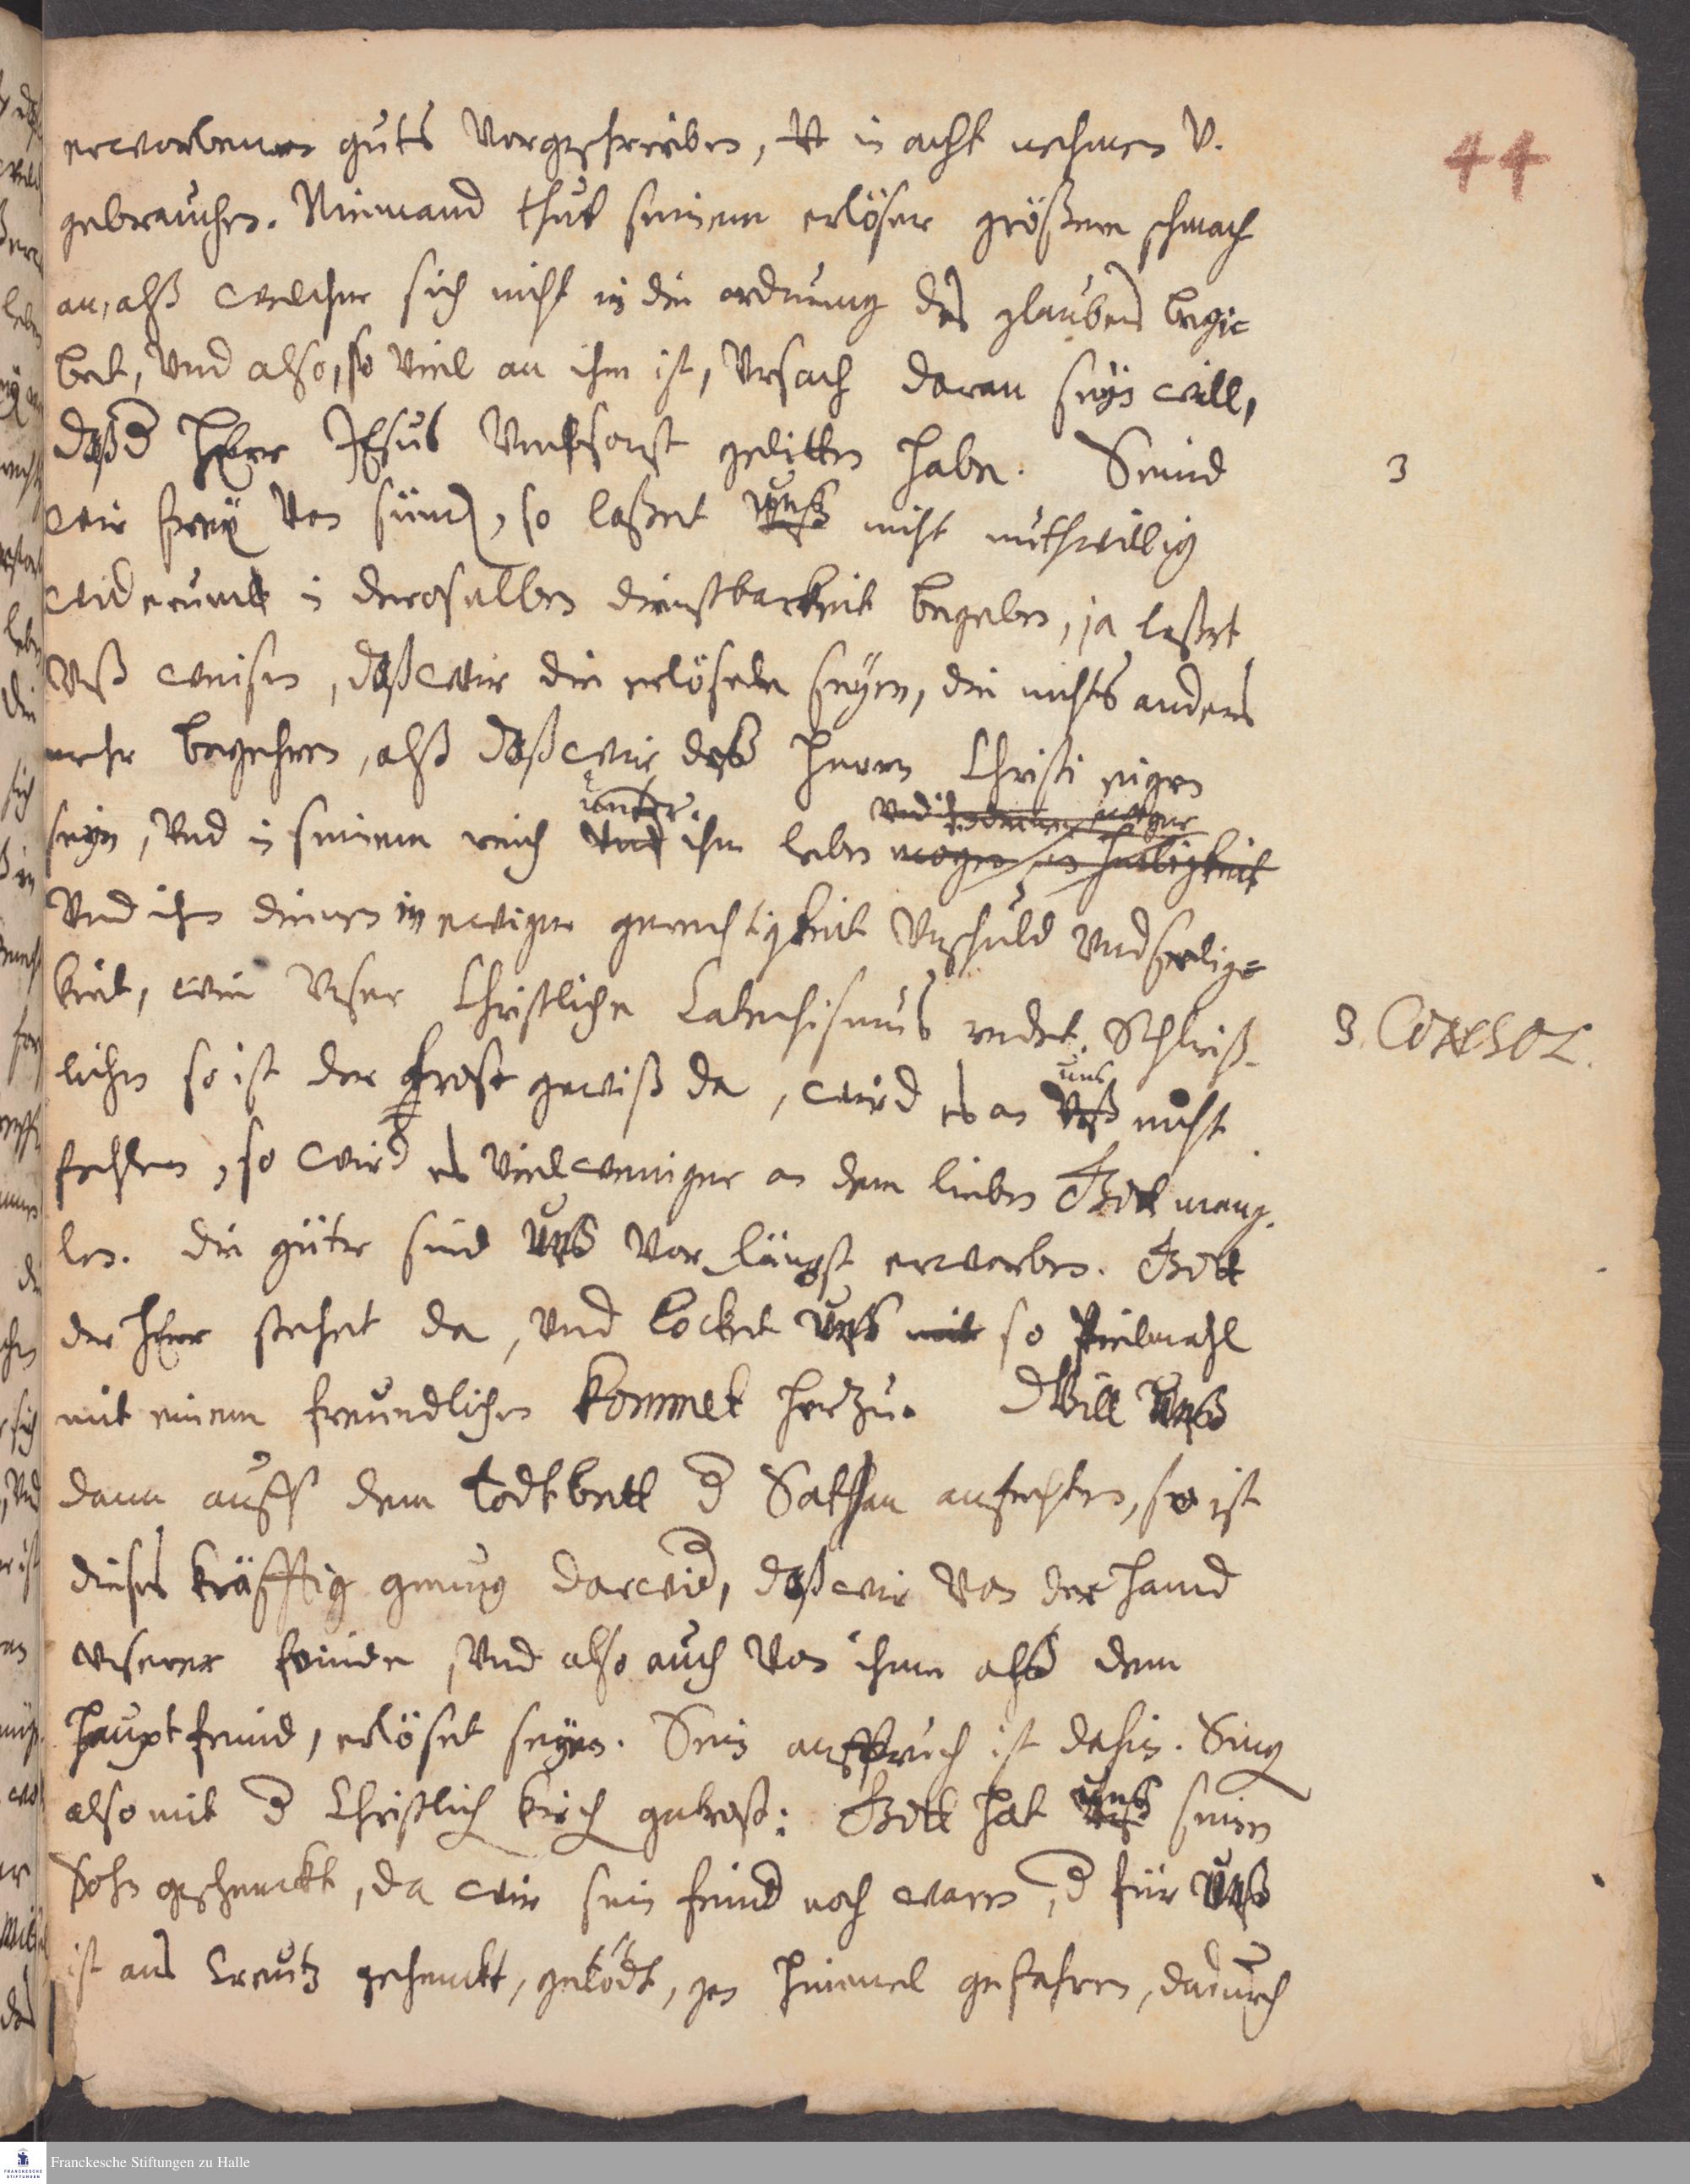 44
erworbenen guts vorgeschrieben, in acht nehmen v.
gebrauchen. Niemand thut seinem erlöser größere schmach
an, alß welcher sich nicht in die ordnung des glaubens begie
bet, Vnd also, so viel an ihm ist, Vrsach daran seyn will,
daß d HErr JEsus Vmbsonst gelitten habe. Seind
3
wir frey von sünd, so laßet unß nicht muthwillig
widerumb in deroselben dienstbarkeit begeben, ja laßet
Vnß weisen, daß wir die erlösete seyen, die nichts anders
mehr begehren, alß daß wir deß Herrn Christi eigen
seyn, Vnd in seinem reich unter ihm leben mögen in heiligkeit
Vnd ihm dienen in ewiger gerechtigkeit Vnschuld Vnd selig=
keit, wie Vnser Christliche Catechismus redet. Schließ-
3. Consol.
lichen so ist der trost gewiß da, wird es an uns nicht
fehlen, so wird es viel weniger an dem lieben Gott mang.
len. die güter sind unß vor längst erworben. Gott
der HErr stehet da, Vnd locket unß mit so vielmahl
mit einem freundlichen kommet herzu. Will unß
dann auff dem todtbett d Sathan anfechten, so ist
dieses kräfftig genug darwid, daß wir von der hand
vnserer feinde, Vnd also auch von ihme alß dem
hauptfeind, erlöset seyen. Sein anspruch ist dahin. Sing
also mit d Christlich kirch getrost: Gott hat unß seinen
Sohn geschenckt, da wir sein feind noch waren, d für unß
ist ans Creutz gehenckt, getödt, gen himmel gefahren, dadurch
Franckesche Stiftungen zu Halle